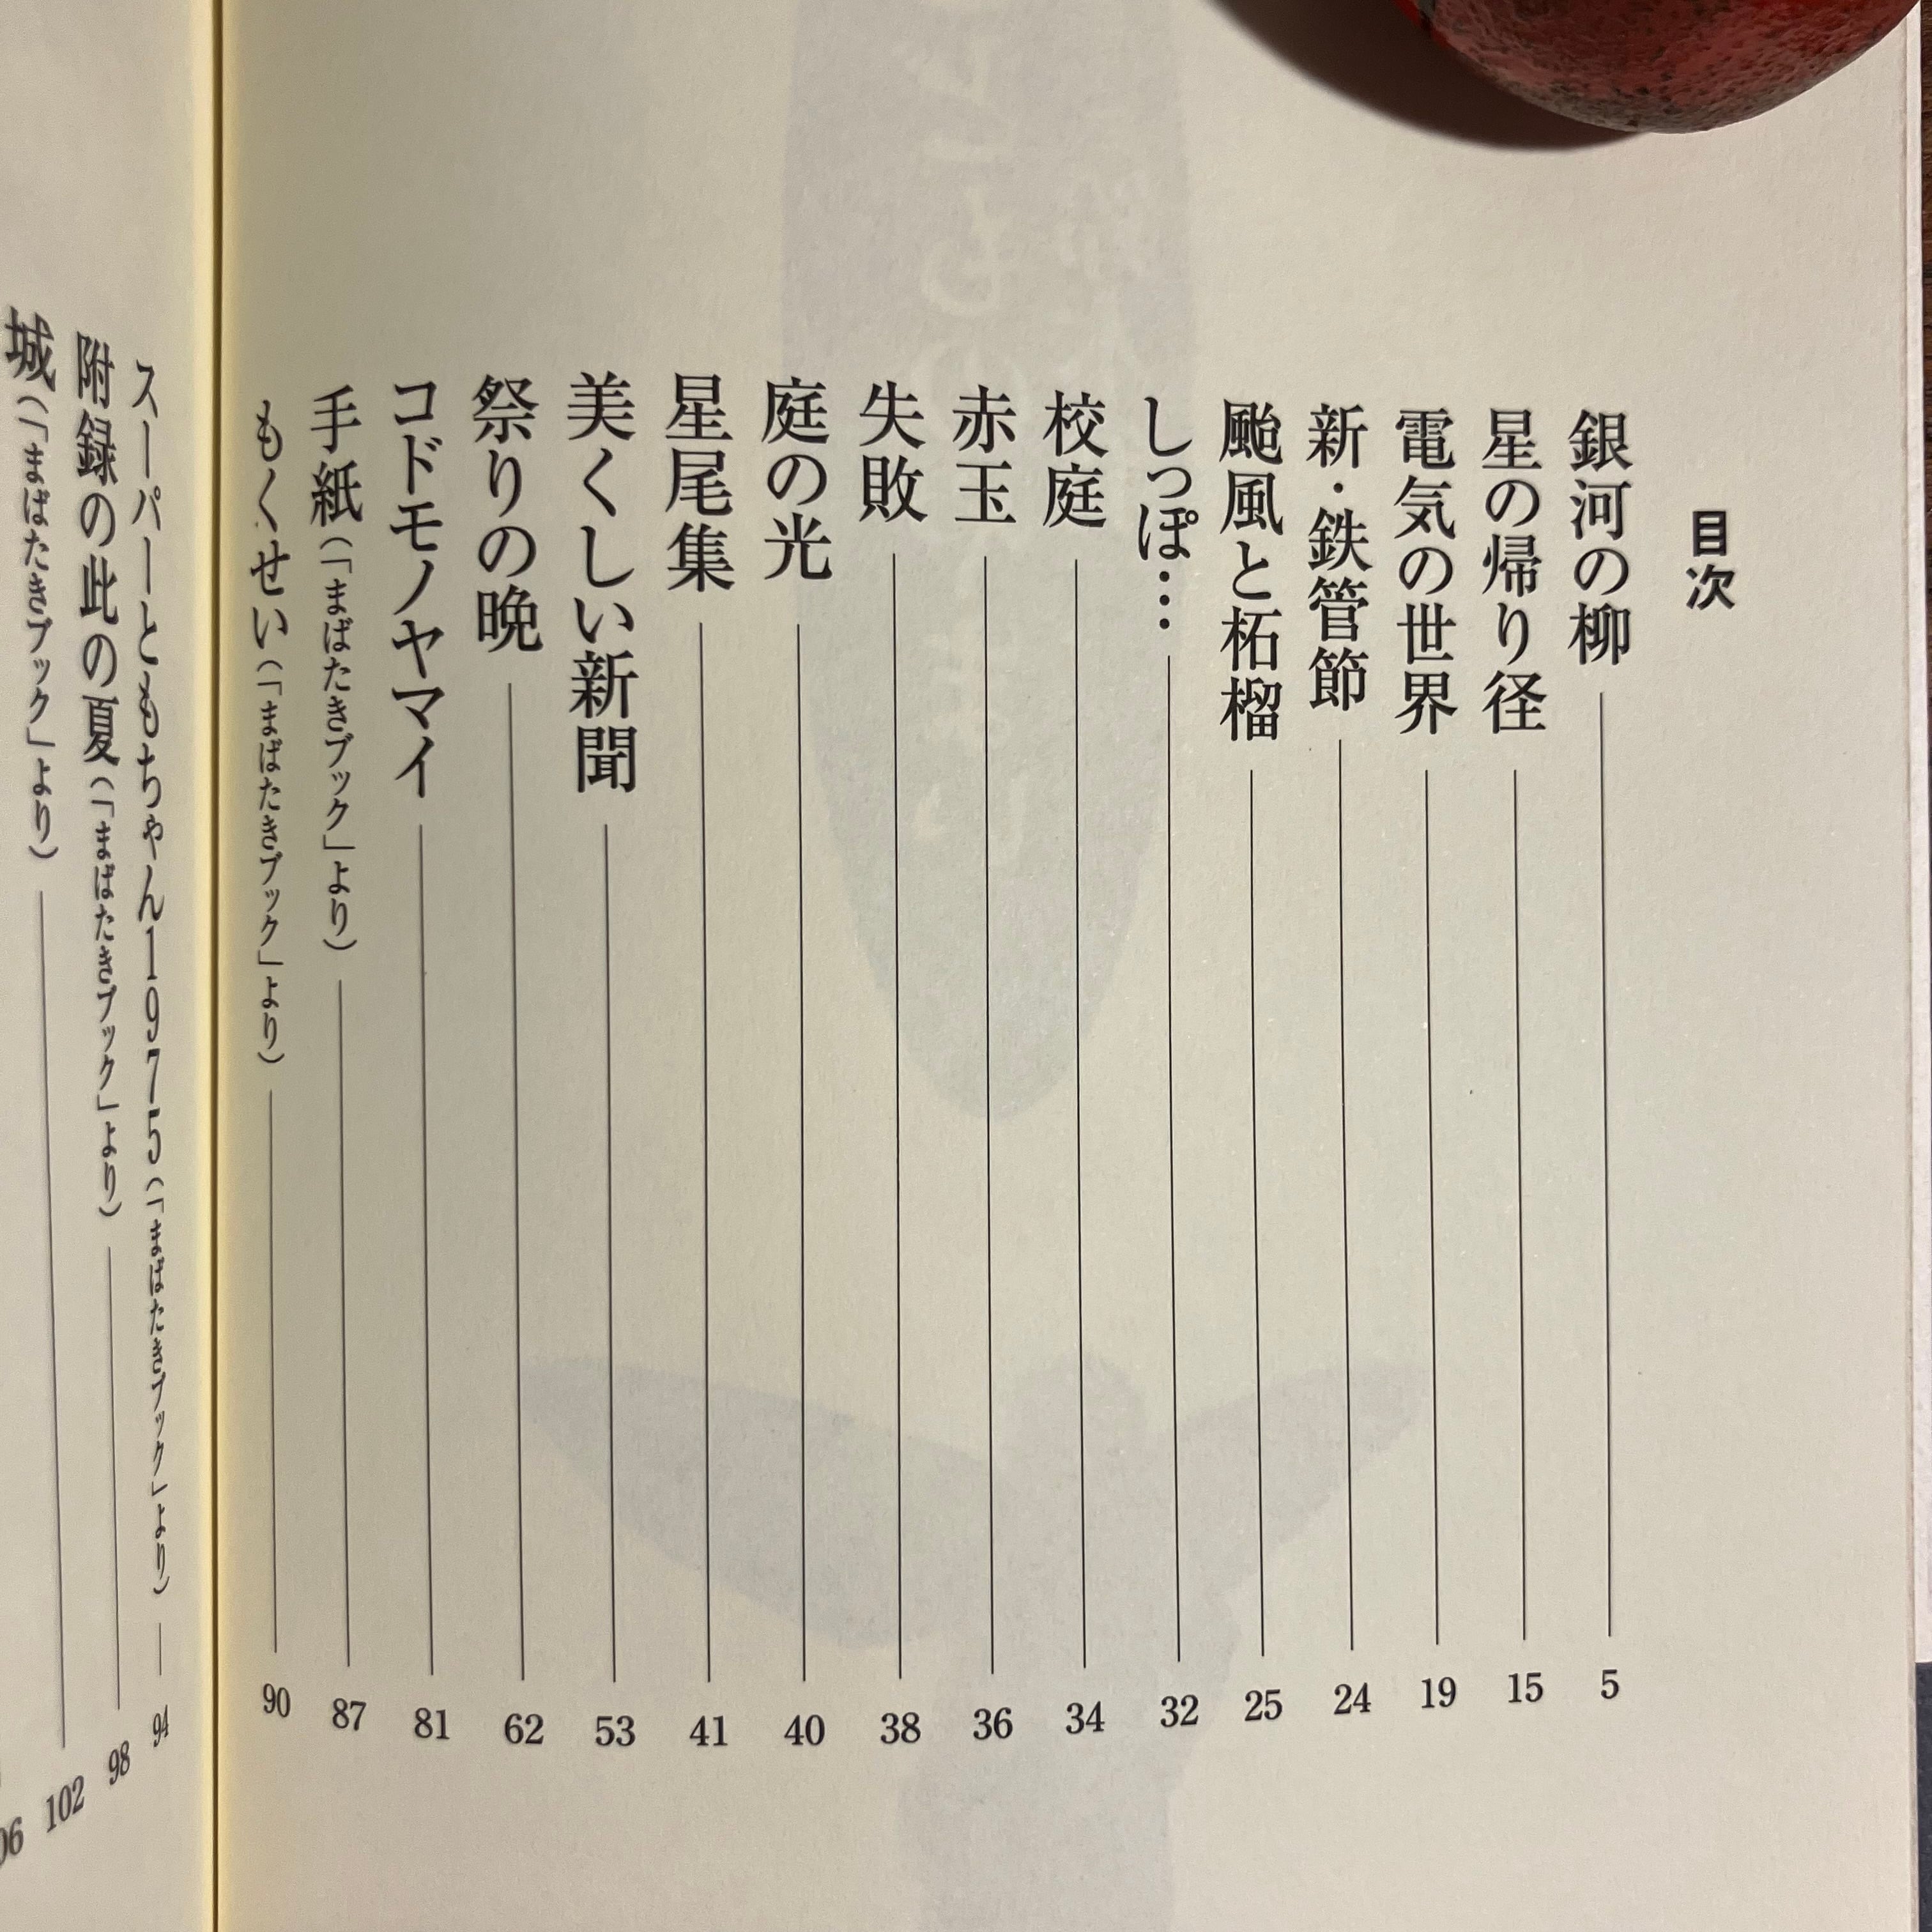 目次
銀河の柳 5
星の帰り径 15
電気の世界 19
新・鉄管節 24
颱風と柘榴 25
しっぽ… 32
校庭 34
赤玉 36
失敗 38
庭の光 40
星尾集 41
美くしい新聞 53
祭りの晩 62
コドモノヤマイ 81
手紙（「まばたきブック」より） 87
もくせい（「まばたきブック」より） 90
スーパーともちゃん1975（「まばたきブック」より） 94
附録の此の夏（「まばたきブック」より） 98
城（「まばたきブック」より） 102